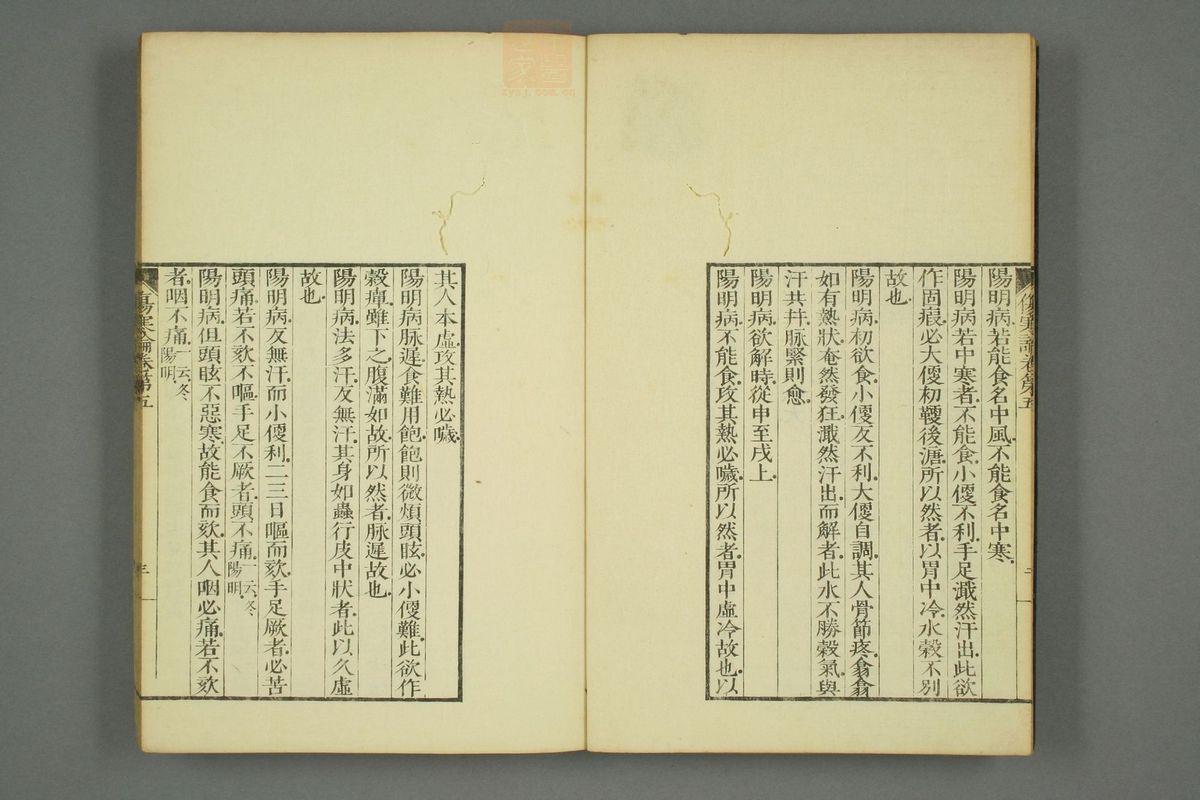 陽明病若能食名中風不能食名中寒
陽明病若中寒者不能食小便不利手足濈然汗出此欲
作固瘕必大便初鞕後溏所以然者以胃中冷水穀不別
故也
陽明病初欲食小便反不利大便自調其人骨節疼翕翕
如有熱狀奄然發狂濈然汗出而解者此水不勝穀氣與
汗共幷脉緊則愈
陽明病欲解時從申至戌上
陽明病不能食攻其熱必噦所以然者胃中虛冷故也以
其人本虛攻其熱必噦
陽明病脉遲食難用飽飽則微煩頭眩必小便難此欲作
穀疸雖下之腹滿如故所以然者脉遲故也
陽明病法多汗反無汗其身如蟲行皮中狀者此以久虛
故也
陽明病反無汗而小便利二三日嘔而欬手足厥者必苦
頭痛若不欬不嘔手足不厥者頭不痛一云冬陽明
陽明病但頭眩不惡寒故能食而欬其人咽必痛若不欬
者咽不痛一云冬陽明
傷寒論卷第五
三